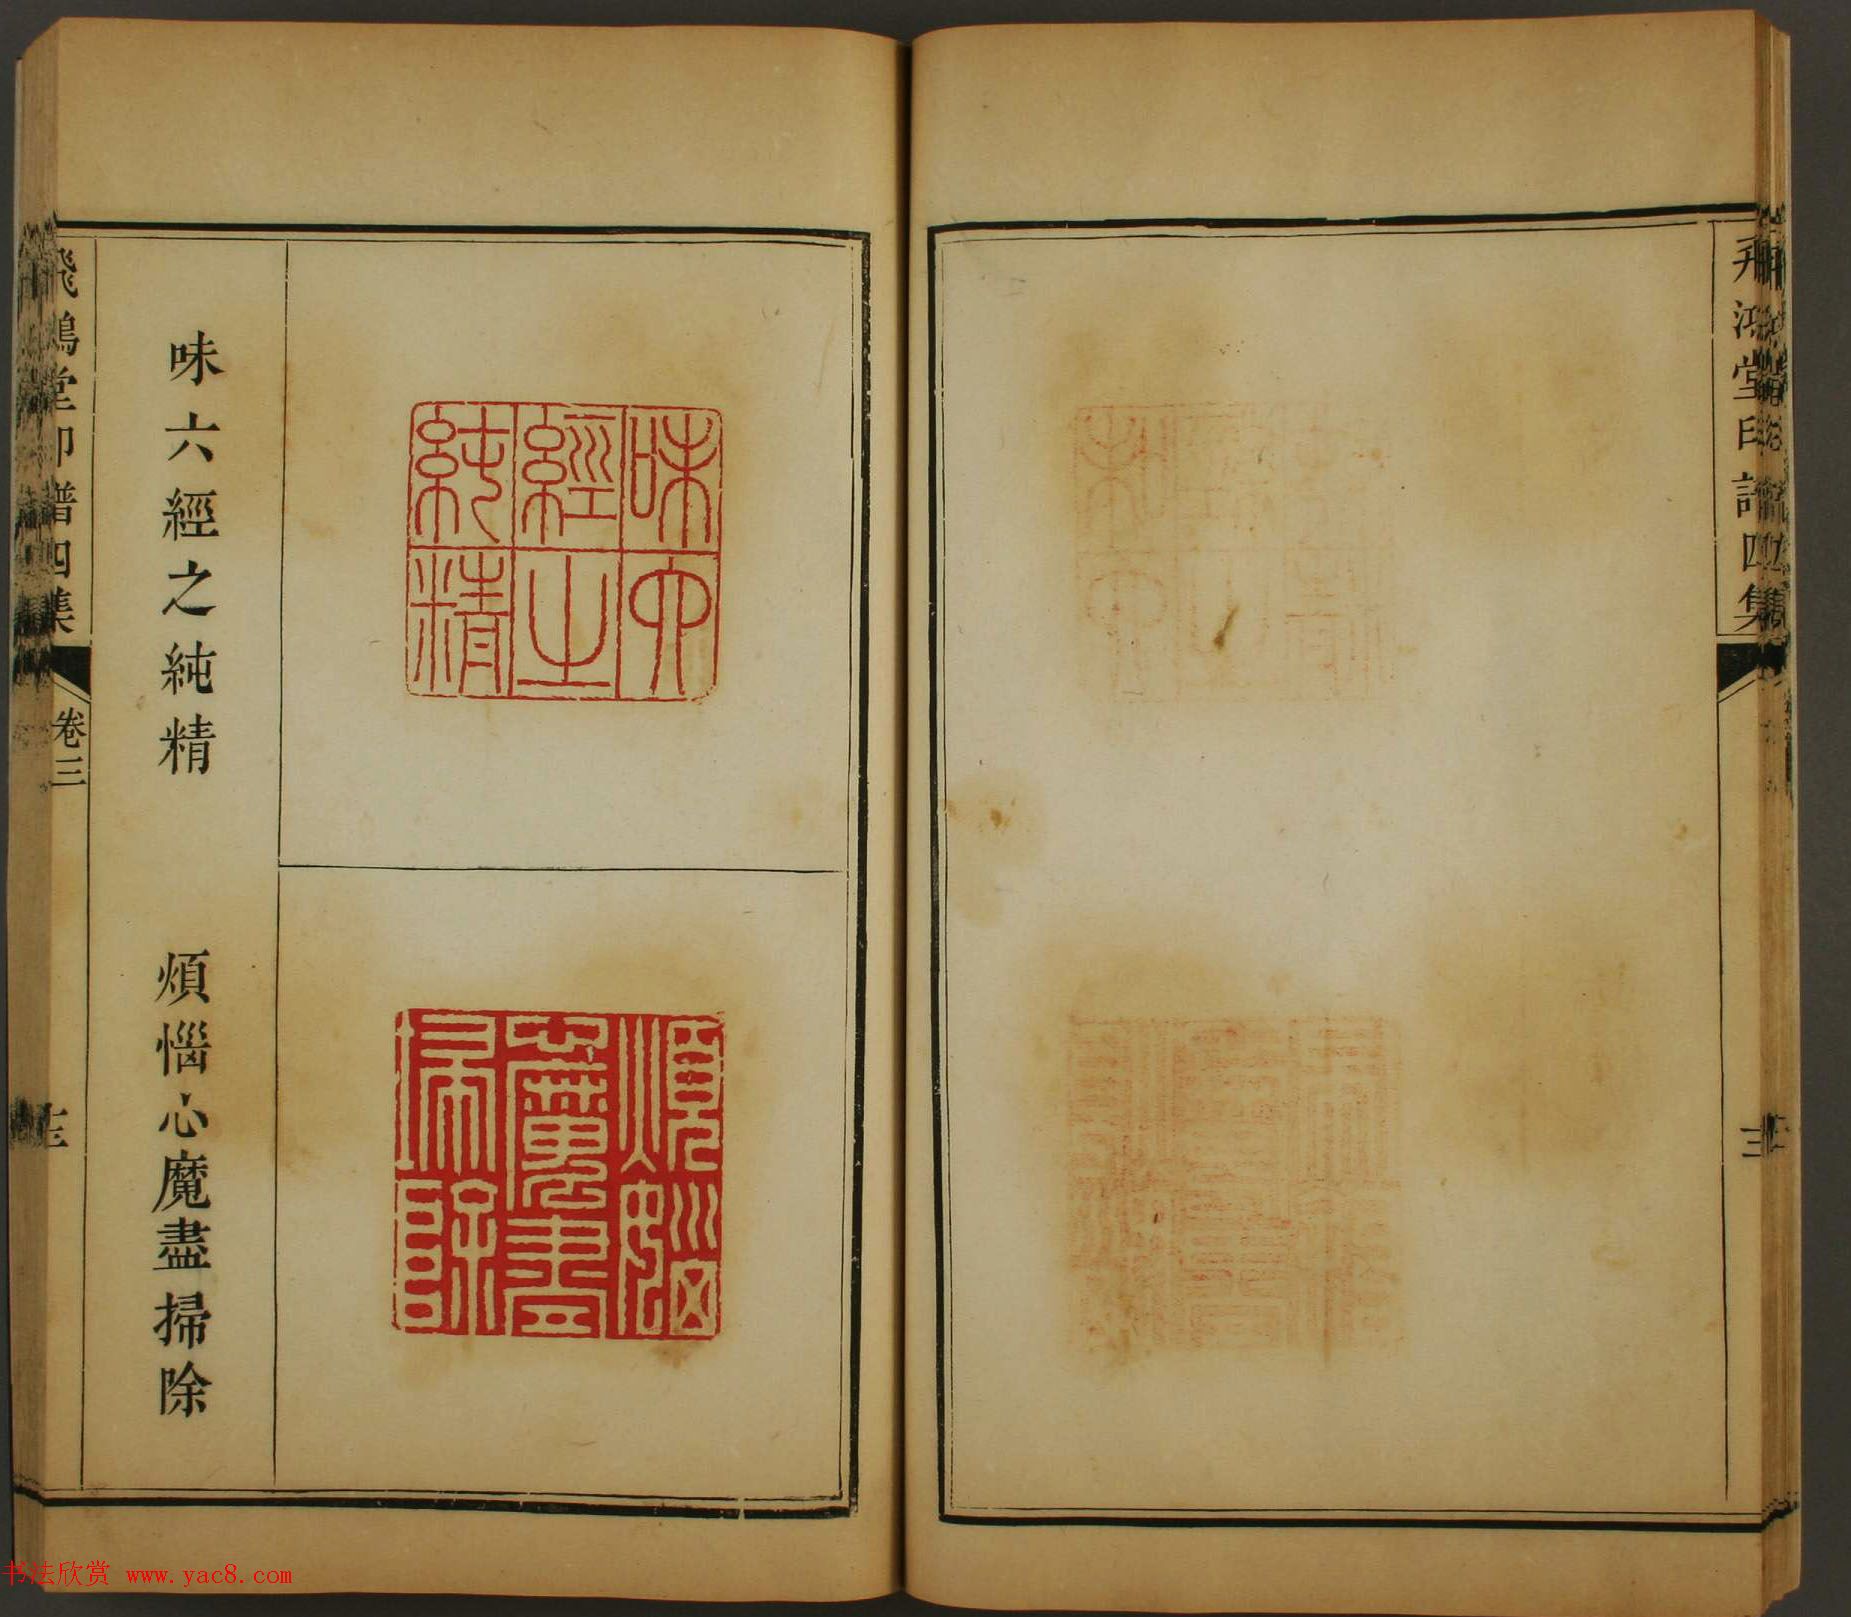 飛鴻堂印譜四集
味經純
六之精
煩惱心魔盡掃除
味六經之純精
煩惱心魔盡掃除
飛鴻堂印譜四集
卷三
书法欣赏 www.yac8.com